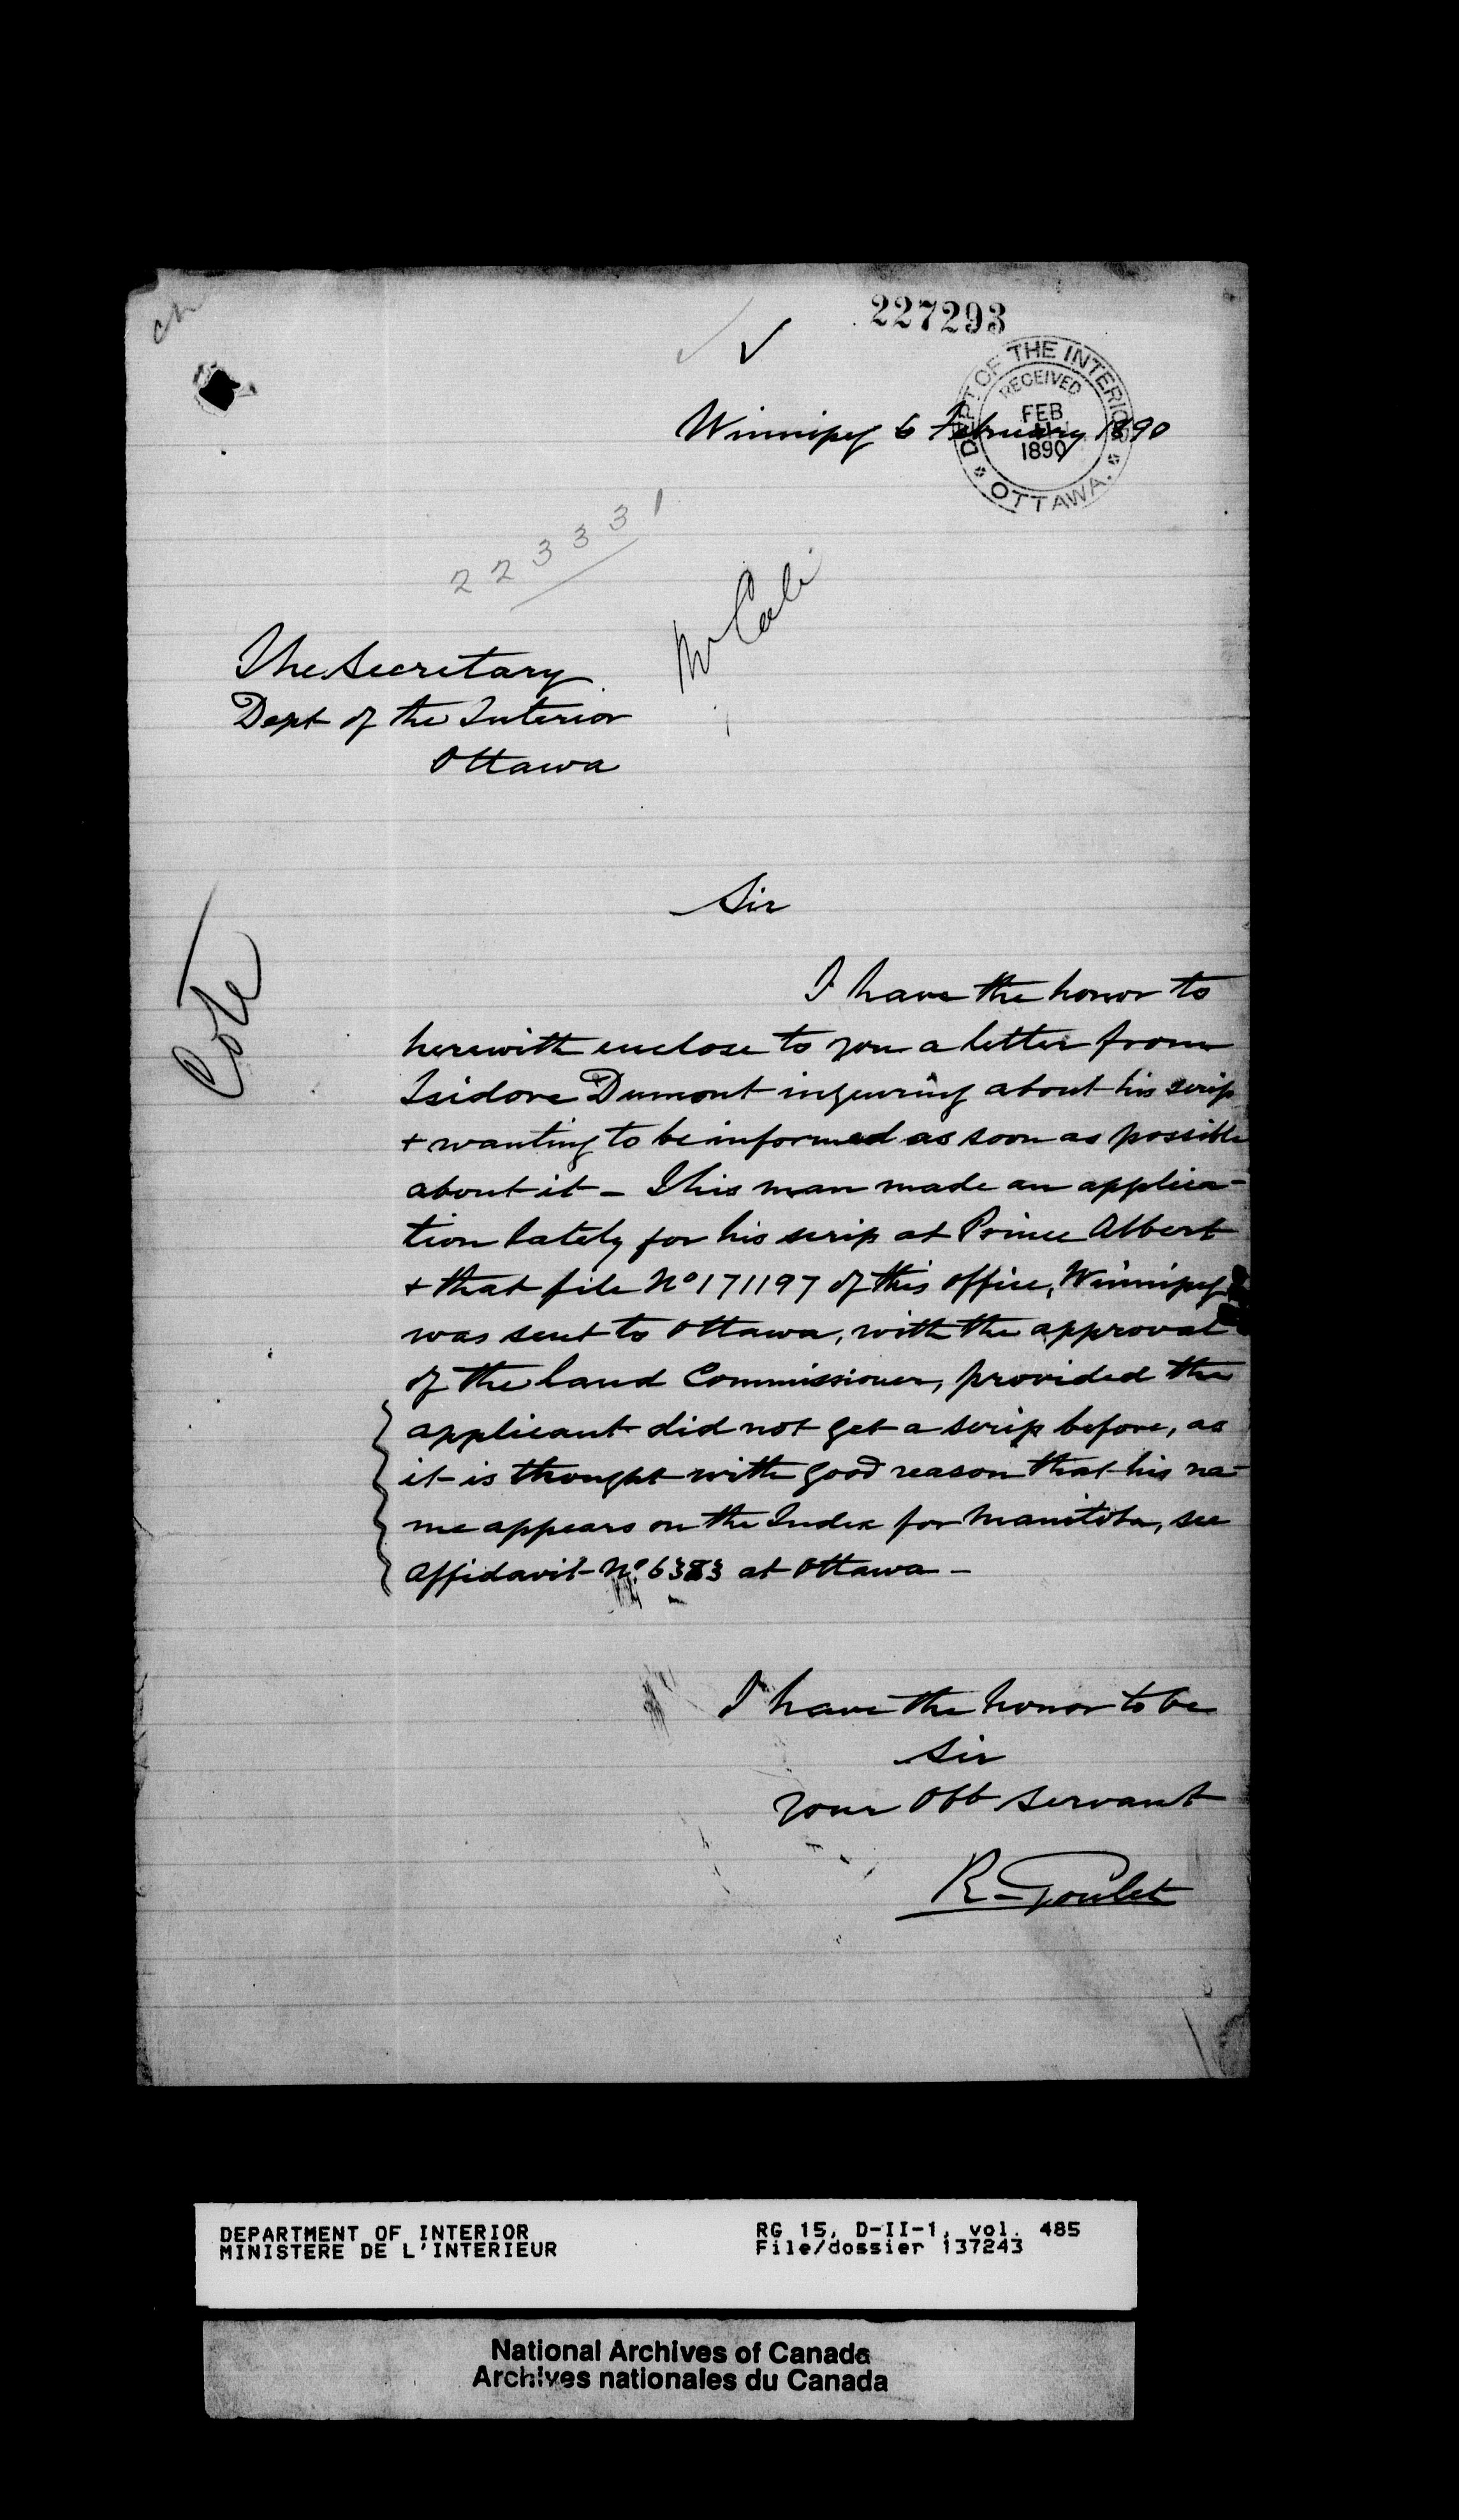 227293
DEPT OF THE INTERIOR
RECEIVED
FEB
1890
OTTAWA.
Winnipeg 6 February 1890
223331
The Secretary
Dept of the Interior
Ottawa
Coté
Sir
I have the honor to
herewith enclose to you a letter from
Isidore Dumont inquiring about his scrip
+ wanting to be informed as soon as possible
about it - This man made an applica-
tion lately for his scrip at Prince Albert
+ that file No 171197 of this office, Winnipeg
was sent to Ottawa, with the approval
of the Land Commissioner, provided the
applicant did not get a scrip before, as
it is thought with good reason that his na-
me appears on the Index for Manitoba, see
affidavit No 6383 at Ottawa -
I have the honor to be
Sir
your Obt servant
R. Goulet
DEPARTMENT OF INTERIOR
MINISTERE DE L'INTERIEUR
RG 15, D-II-1, vol. 485
File/dossier 137243
National Archives of Canada
Archives nationales du Canada